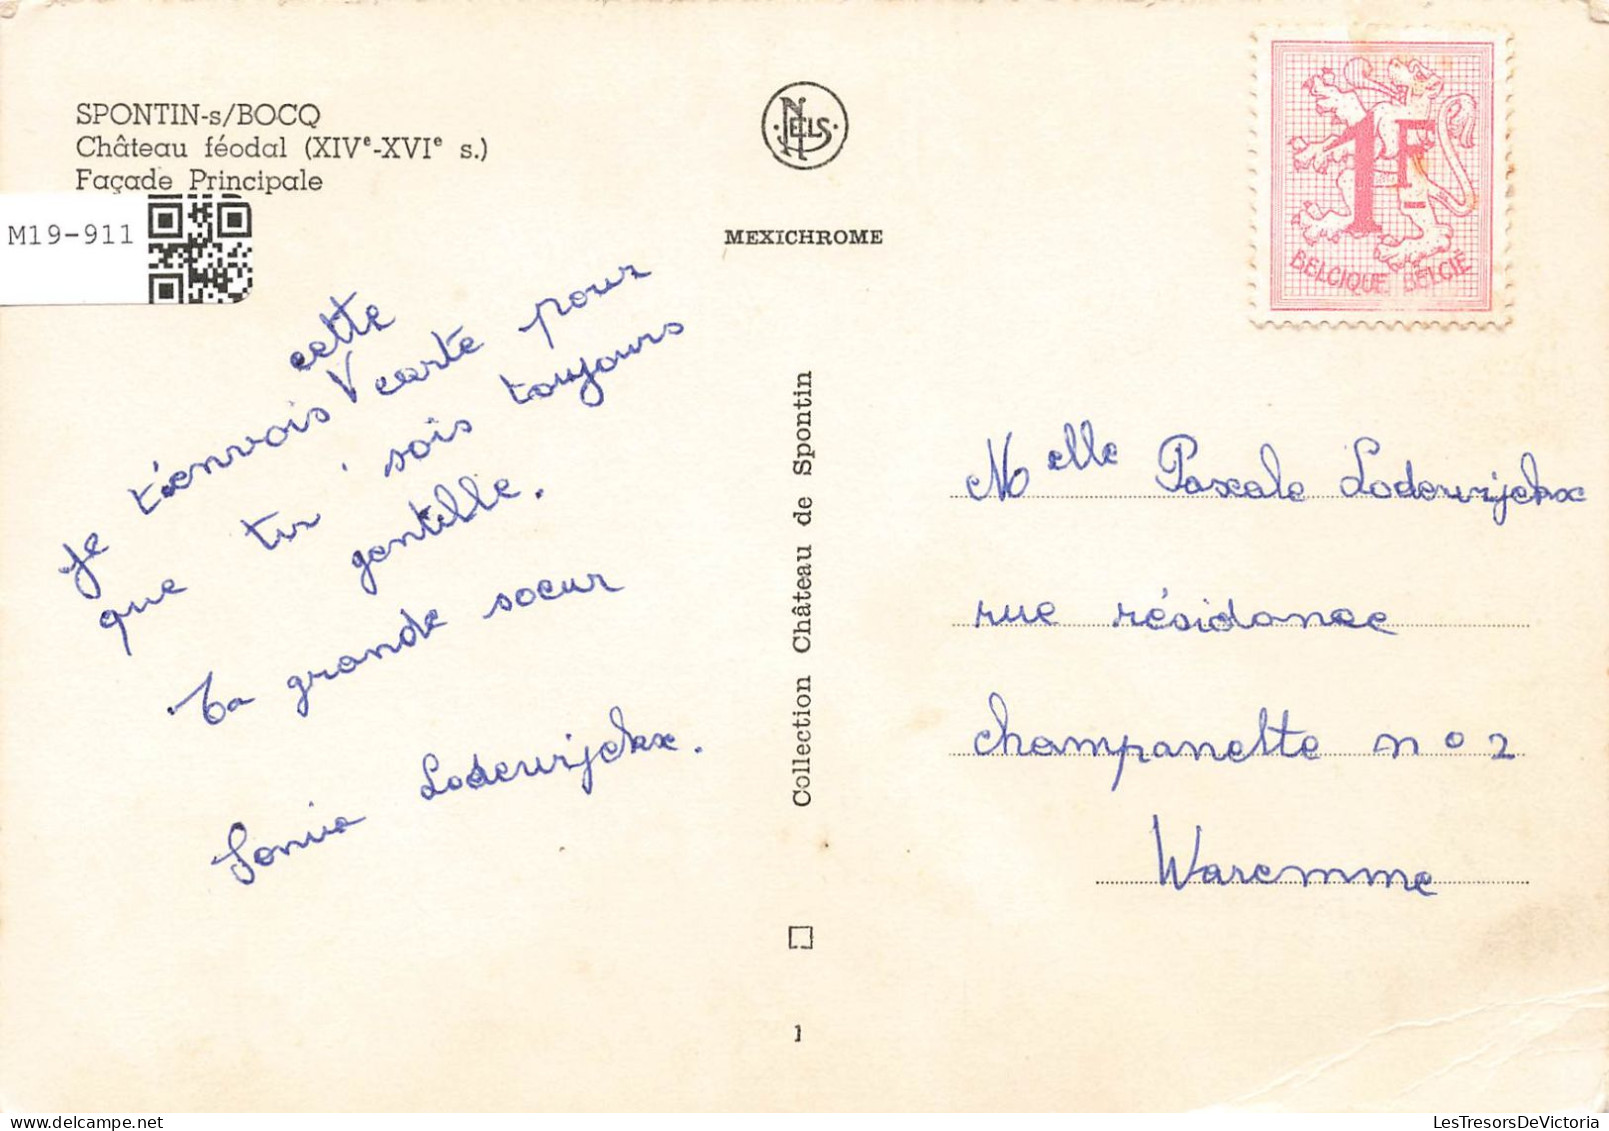 SPONTIN-s/BOCQ
Château féodal (XIVᵉ-XVIᵉ s.)
Façade Principale
M19-911
NELS
MEXICHROME
1F
BELGIQUE BELGIË
cette
je t'envois V carte pour
que tu sois toujours
gentille.
Ta grande soeur
Sonia Loderwijckx.
Collection Château de Spontin
1
Melle Pascale Loderwijckx
rue résidance
champanette no 2
Waremme
LesTresorsDeVictoria.com